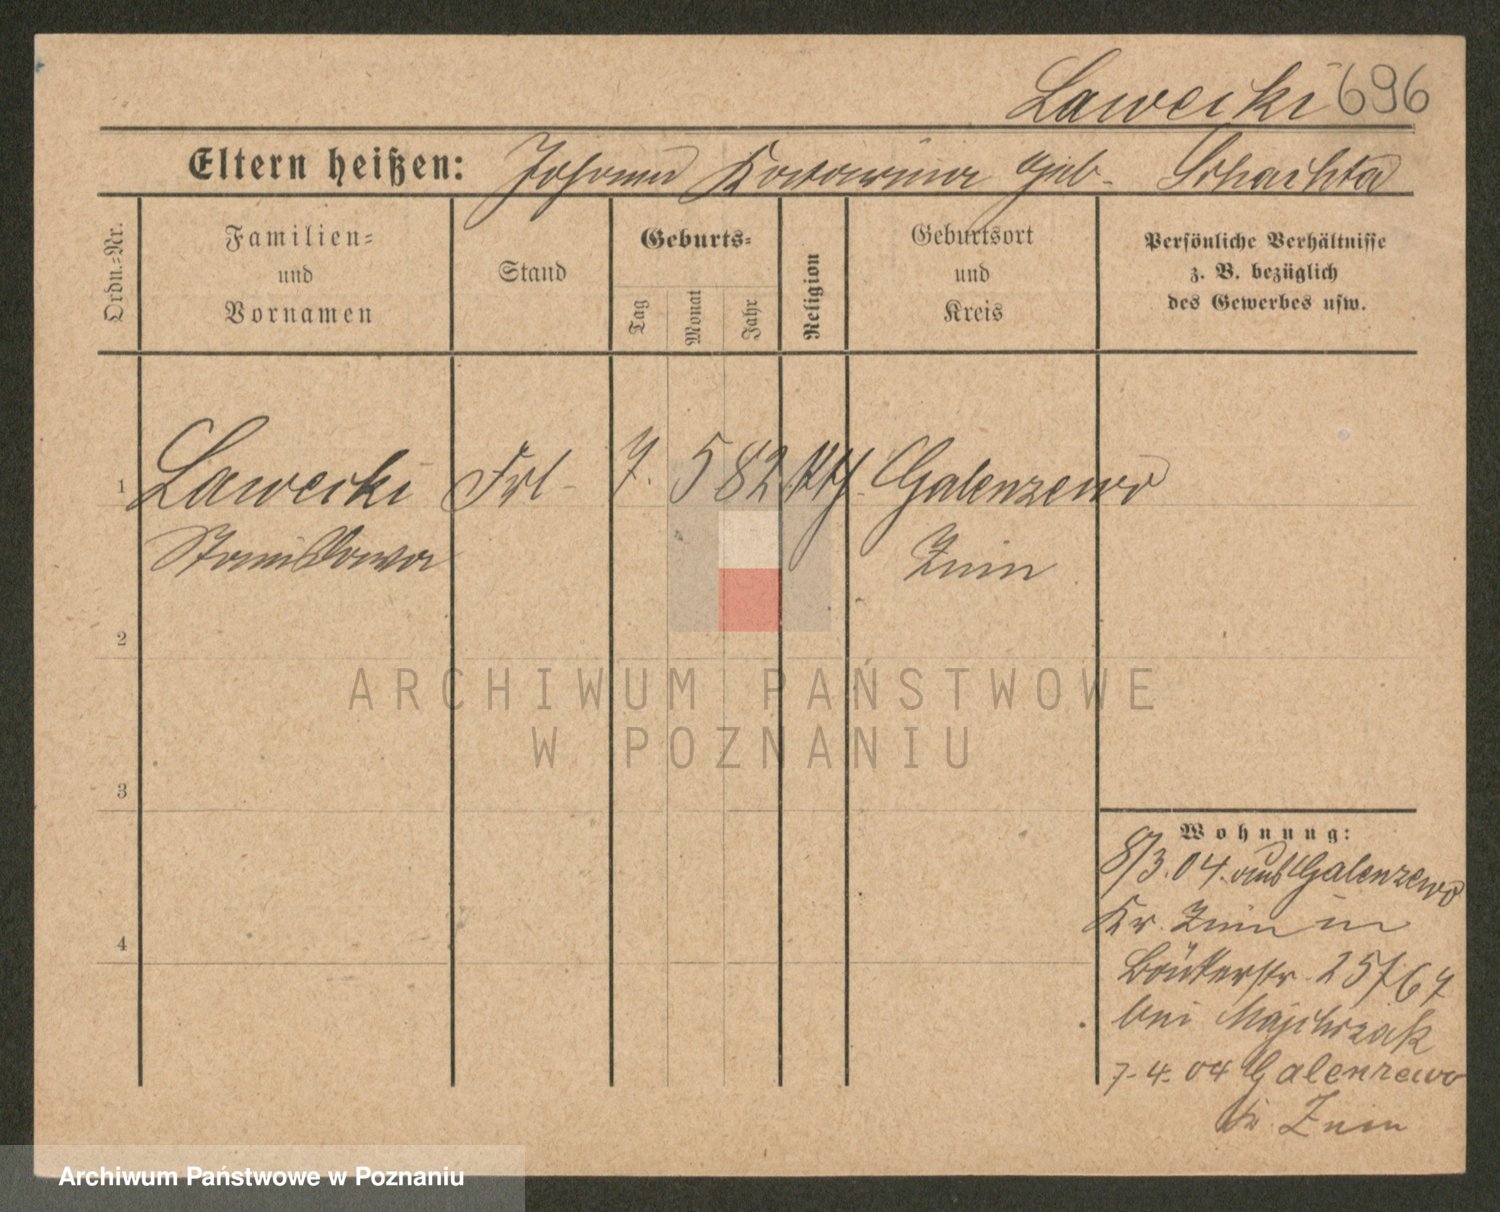 Lawecki 696
Eltern heißen: Johann Katarina geb. Schachta
Ordn.=Nr.
Familien=
und
Vornamen
Stand
Geburts=
Tag
Monat
Jahr
Religion
Geburtsort
und
Kreis
Persönliche Verhältnisse
z. B. bezüglich
des Gewerbes usw.
1 Lawecki Frl 7. 5 82 kth. Galenzewo
Stanislawa Znin
2
3
4
Wohnung:
8/3.04. aus Galenzewo
Kr. Znin in
25/67
bei Majchrzak
7-4-04 Galenzewo
Kr. Znin
ARCHIWUM PAŃSTWOWE
W POZNANIU
Archiwum Państwowe w Poznaniu